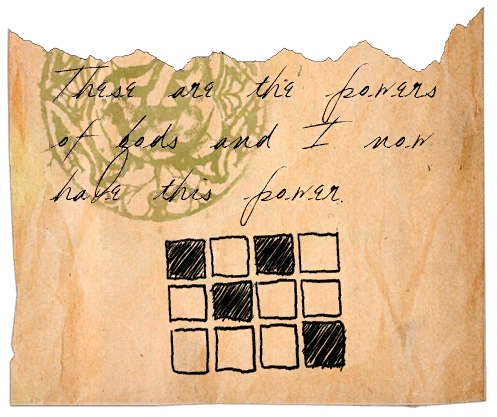 These are the powers
of gods and I now
have this power.